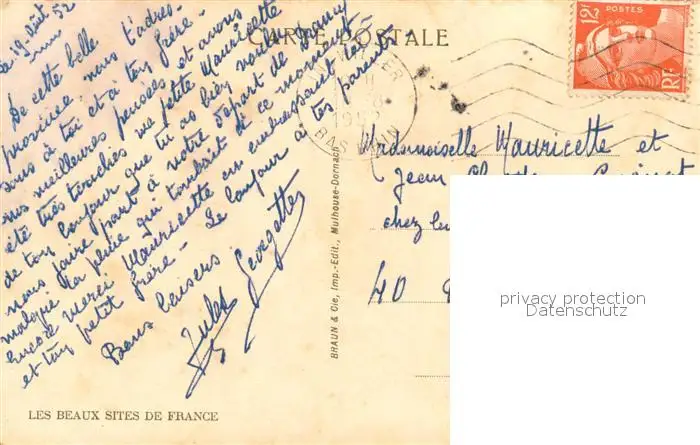 le 19 août 52
CARTE POSTALE
De cette belle
province nous t'adres-
sons à toi et à ton frère
nos meilleures pensées et avons
été très touchés ma petite Mauricette
de ton bonjour que tu as bien voulu
nous faire part à notre départ de
malgré la pluie qui tombait à ce moment
Encore merci Mauricette en embrassant
et ton petit frère - Le bonjour à tes parents -
Bons baisers
Jules
Georgette
POSTES
12F
RF
1952
BAS RHIN
Mademoiselle Mauricette et
Jean
chez
40
BRAUN & Cie, Imp.-Edit., Mulhouse-Dornach
LES BEAUX SITES DE FRANCE
privacy protection
Datenschutz